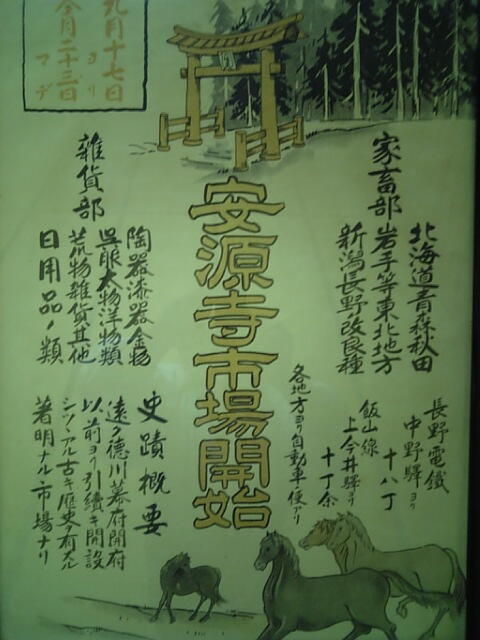 九月十七日ヨリ
仝月二十三日マデ
安源寺市場開始
家畜部
北海道青森秋田
岩手等東北地方
新潟長野改良種
長野電鐵
中野驛ヨリ
十八丁
飯山線
上今井驛ヨリ
十丁余
各地方ヨリ自動車便アリ
雜貨部
陶器漆器金物
呉服太物洋物類
荒物雜貨其他
日用品ノ類
史蹟概要
遠ク德川幕府開府
以前ヨリ引續キ開設
シツヽアル古キ歴史有スル
著明ナル市場ナリ